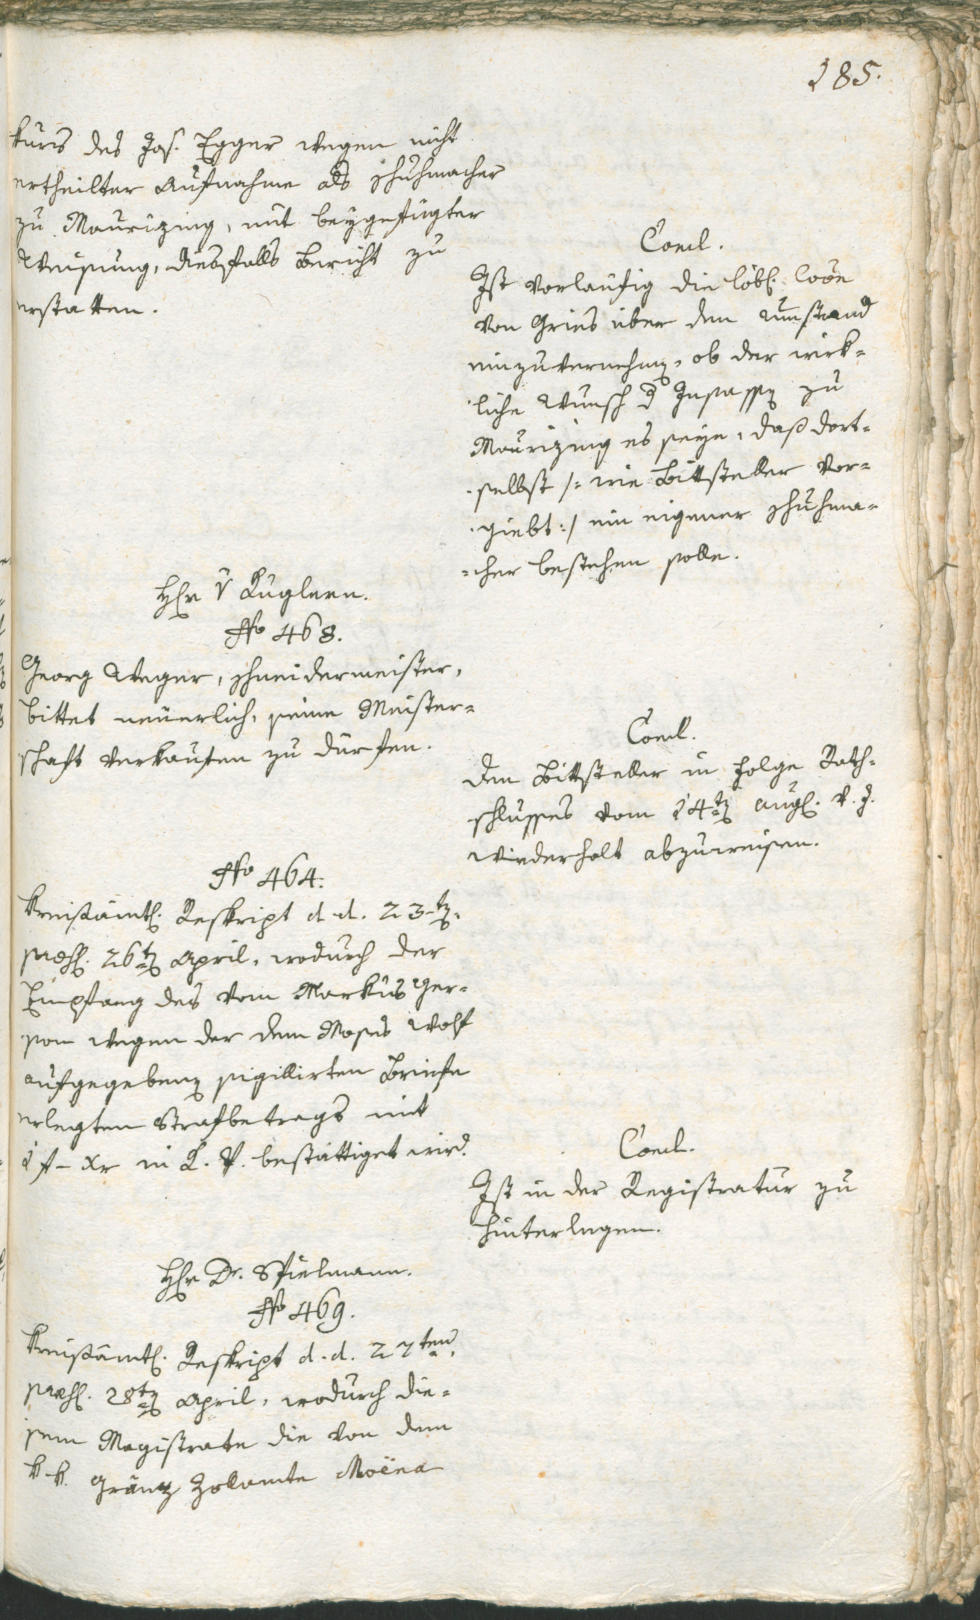 185.
kurs des Jos. Egger wegen nicht
ertheilter Aufnahme als Schuhmacher
zu Maurizing, mit beygefügter
Weisung, diesfalls Bericht zu
erstatten.
Concl.
Ist vorläufig die löbl.
von Gries über den Umstand
einzuvernehmen, ob der wirk=
liche Wunsch d Insassen zu
Maurizing es seye, daß dort=
selbst /: wie Bittsteller vor=
giebt :/ ein eigener Schuhma=
=cher bestehen solle.
Hr v Kuglern.
No 468.
Georg Weger, Schneidermeister,
bittet neuerlich, seine Meister=
schaft verkaufen zu dürfen.
Concl.
Den Bittsteller in Folge Rath=
schlusses vom 14ten Aug. v. J.
wiederholt abzuweisen.
No 464.
Kreisämtl. Reskript d. d. 23ten,
praes. 26ten April, wodurch der
Empfang des vom Markus Ger=
son wegen der dem Moses Wolf
aufgegebenen sigillirten Briefe
erlegten Strafbetrags mit
1 f – xr in R. W. bestättiget wird.
Concl.
Ist in der Registratur zu
hinterlegen.
Hr Dr. Spielmann.
No 469.
Kreisämtl. Reskript d. d. 27ten,
praes. 28ten April, wodurch die=
sem Magistrate die von dem
k. k. Gränz Zollamte Moëna